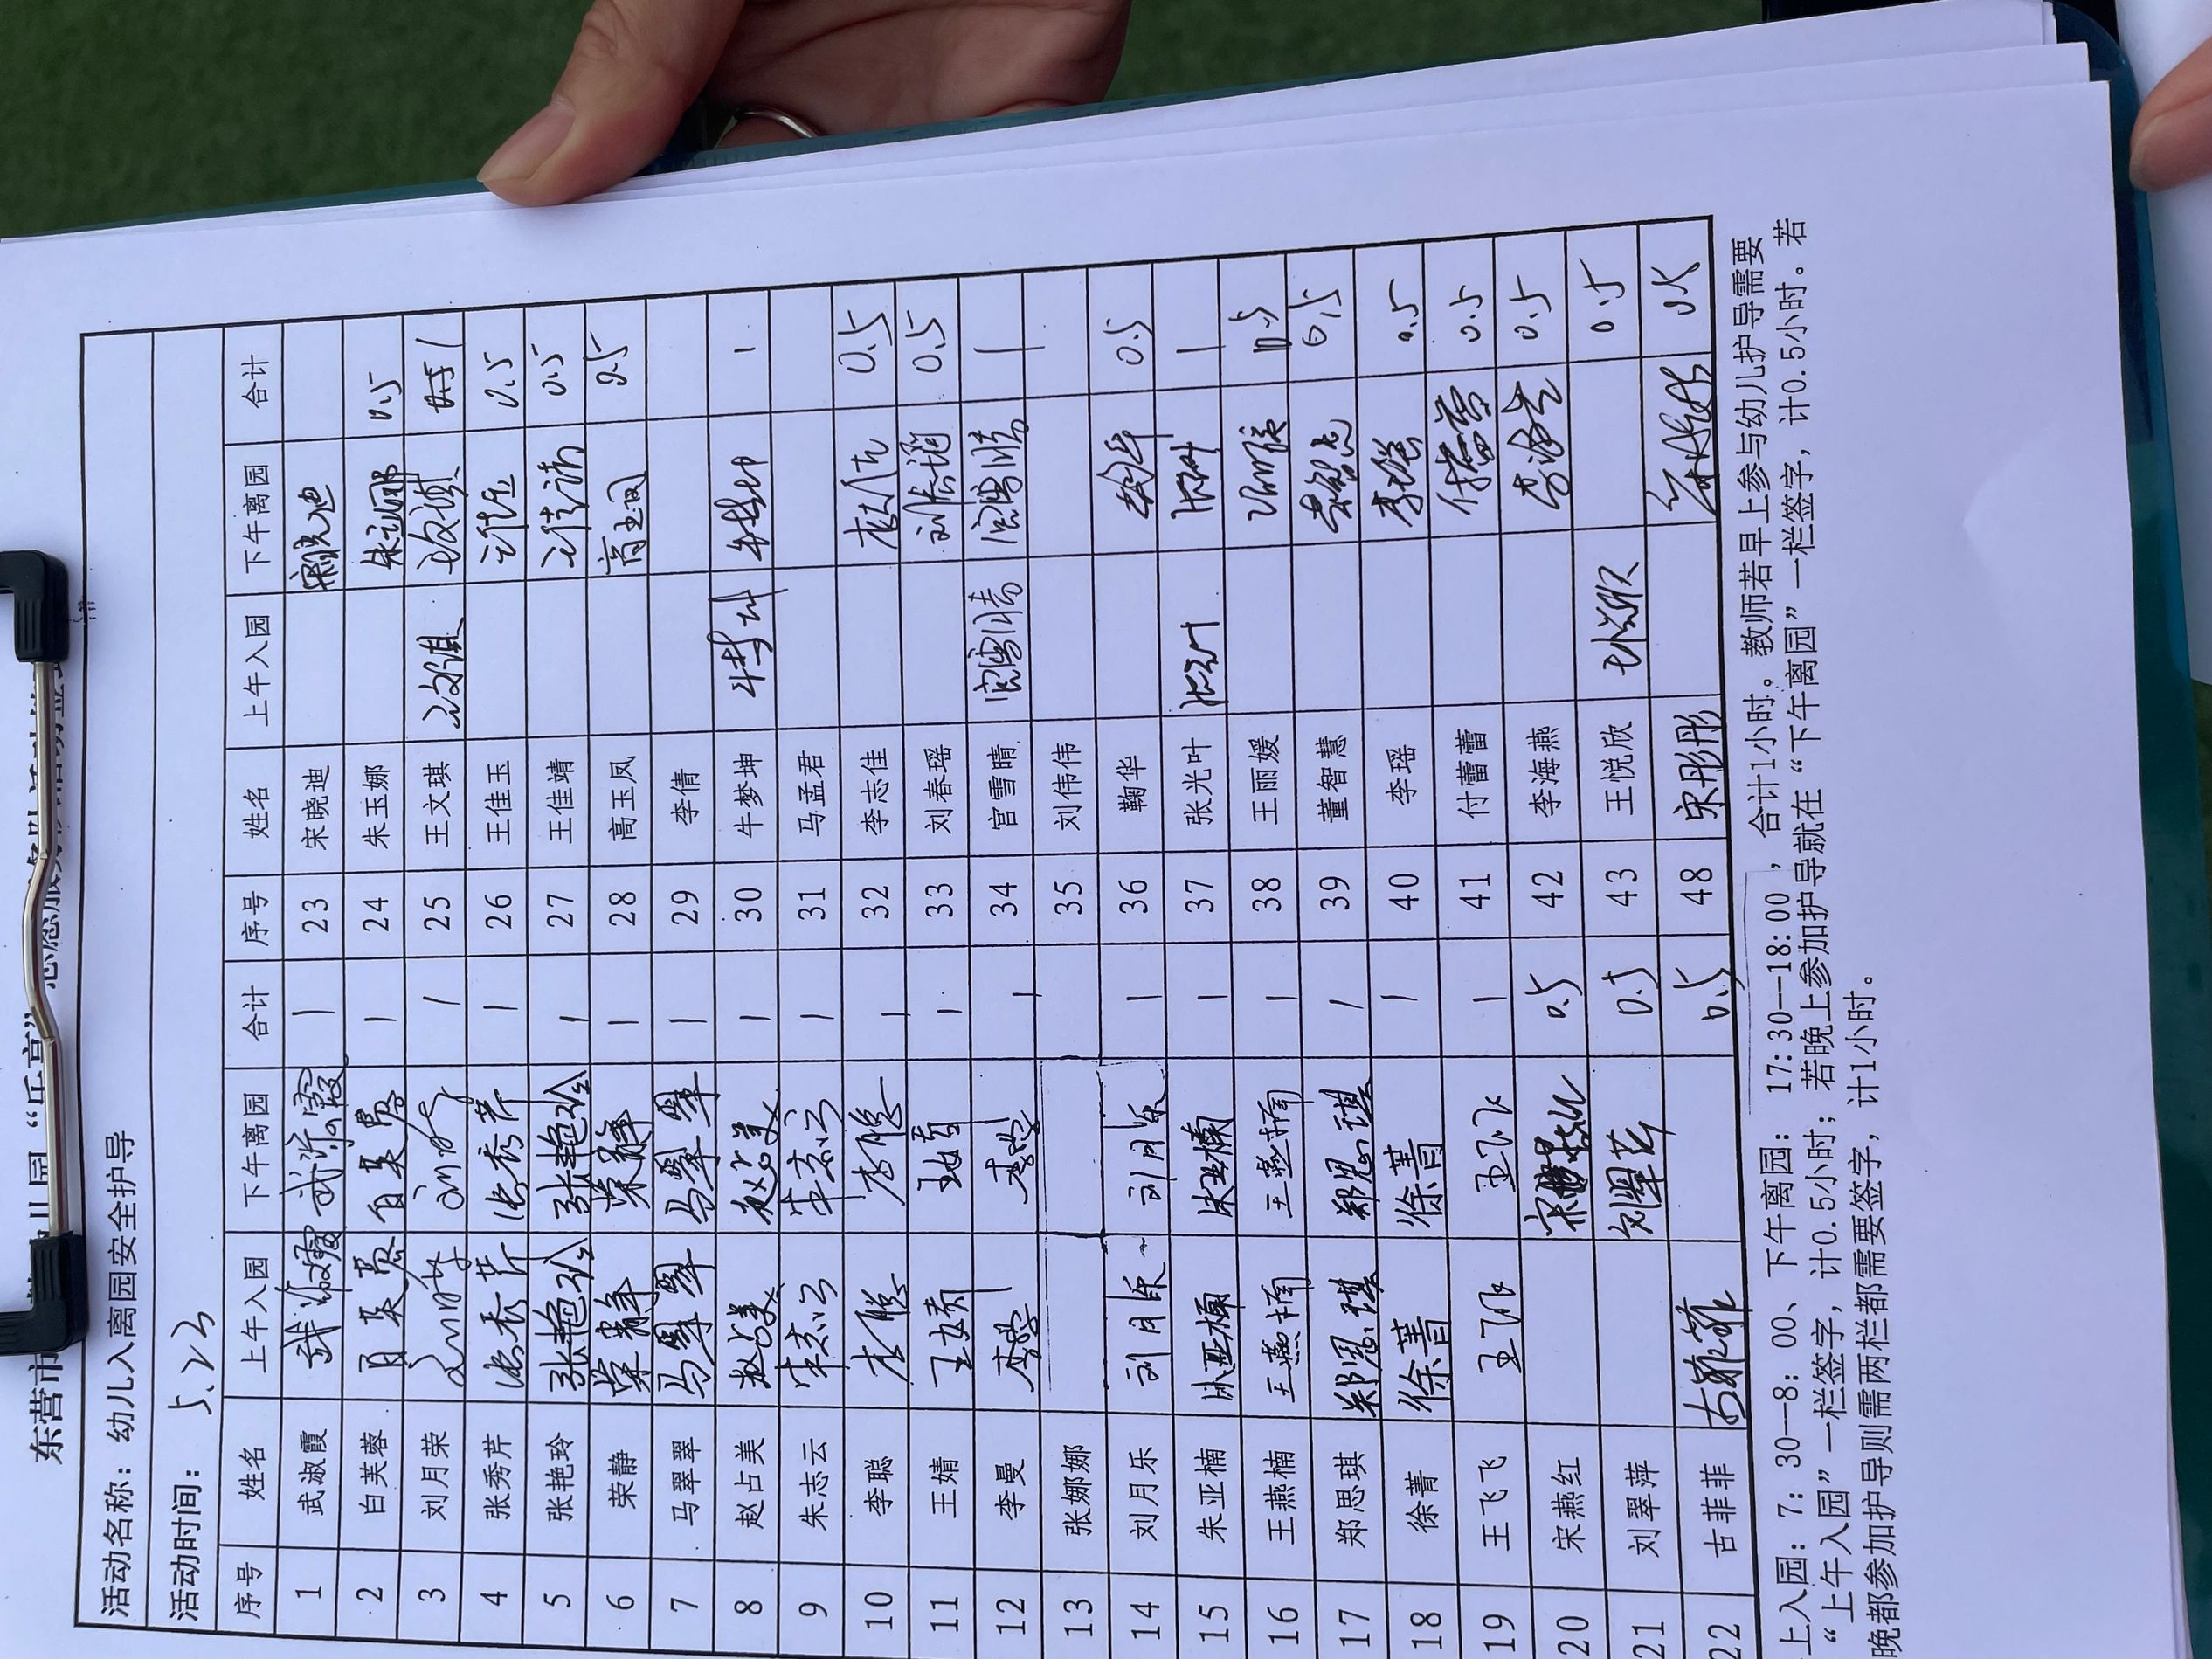 东营市
幼儿园“乐享”志愿服务
活动名称：幼儿入离园安全护导
活动时间： 5.23
序号 姓名 上午入园 下午离园 合计 序号 姓名 上午入园 下午离园 合计
1 武淑霞 武淑霞 武淑霞 1 23 宋晓迪
2 白芙蓉 白芙蓉 白芙蓉 1 24 朱玉娜 朱玉娜 0.5
3 刘月荣 1 25 王文琪 王文琪 王文琪 1
4 张秀芹 张秀芹 张秀芹 1 26 王佳玉 王佳玉 0.5
5 张艳玲 张艳玲 张艳玲 1 27 王佳靖 王佳靖 0.5
6 荣静 荣静 荣静 1 28 高玉凤 高玉凤 0.5
7 马翠翠 马翠翠 马翠翠 1 29 李倩
8 赵占美 赵占美 赵占美 1 30 牛梦坤 牛梦坤 牛梦坤 1
9 朱志云 朱志云 朱志云 1 31 马孟君
10 李聪 李聪 李聪 1 32 李志佳 0.5
11 王婧 王婧 王婧 1 33 刘春瑶 刘春瑶 0.5
12 李曼 李曼 李曼 1 34 宫雪晴 宫雪晴 宫雪晴 1
13 张娜娜 35 刘伟伟
14 刘月乐 刘月乐 刘月乐 1 36 鞠华 鞠华 0.5
15 朱亚楠 朱亚楠 朱亚楠 1 37 张光叶 张光叶 张光叶 1
16 王燕楠 王燕楠 王燕楠 1 38 王丽媛 王丽媛 0.5
17 郑思琪 郑思琪 郑思琪 1 39 董智慧 董智慧 0.5
18 徐菁 徐菁 徐菁 1 40 李瑶 李瑶 0.5
19 王飞飞 王飞飞 王飞飞 1 41 付蕾蕾 付蕾蕾 0.5
20 宋燕红 宋燕红 0.5 42 李海燕 李海燕 0.5
21 刘翠萍 刘翠萍 0.5 43 王悦欣 王悦欣 0.5
22 古菲菲 古菲菲 0.5 48 宋彤彤 宋彤彤 0.5
上入园：7：30—8：00、下午离园：17:30—18:00，合计1小时。教师若早上参与幼儿护导需要
“上午入园”一栏签字，计0.5小时；若晚上参加护导就在“下午离园”一栏签字，计0.5小时。若
晚都参加护导则需两栏都需要签字，计1小时。